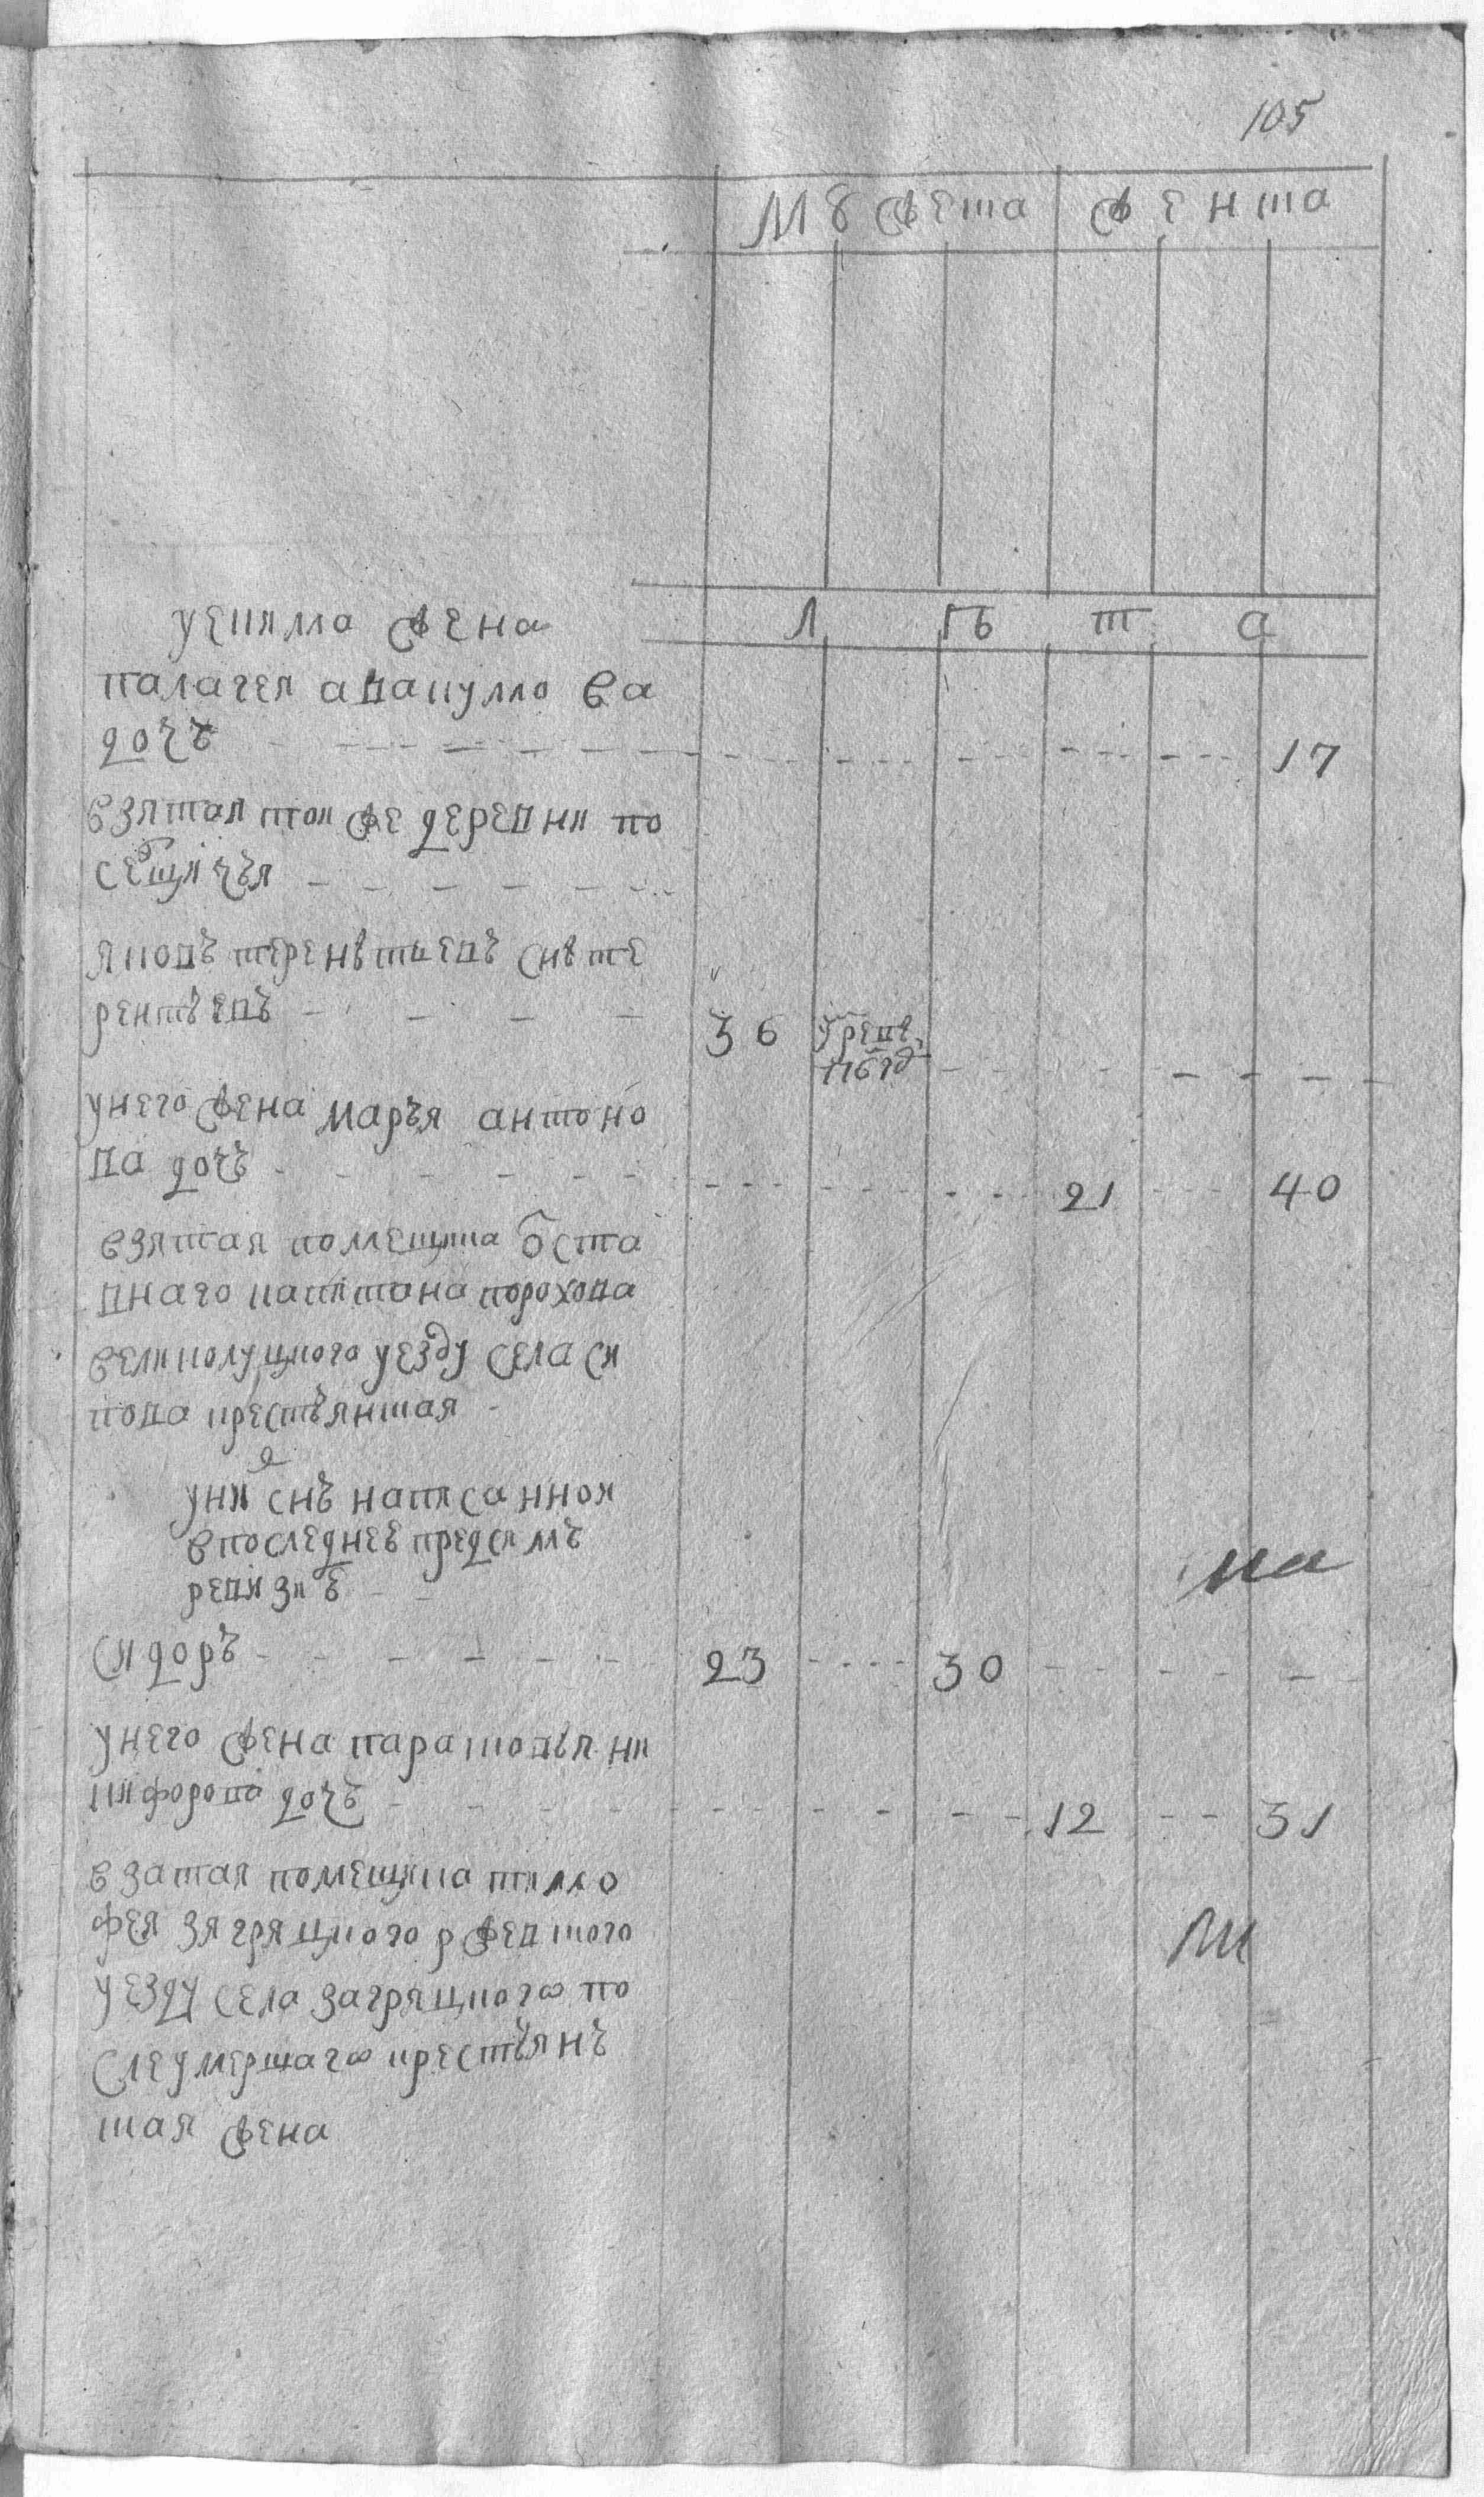 105
мужеска женска
Л ГЪ Т А
уекима жена
палагея авакумова
дочь 17
взятая тои же деревни по
яковъ терентьевъ снъ те
рентьевъ 36
унего жена марья антоно
ва дочь 21 40
взятая помещика отста
внаго капитана порохова
великолуцкого уезду села си
кова крестьянская
уни снъ написаннои
впоследнее пред симъ
ревизие
на
сидоръ 23 30
унего жена парасковья ни
кифорова дочь 12 31
взятая помещика тимо
фея загряцкого ржевского
уезду села загряцкого по
сле умершаго крестьянъ
ская жена